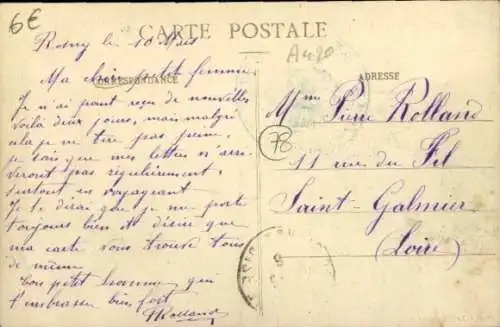 6€
CARTE POSTALE
Rosny le 10 Mars
A490
CORRESPONDANCE
ADRESSE
Ma chère petite femme
Je n'ai point reçu de nouvelles
voilà deux jours, mais malgré
cela je ne tire pas peine,
je sais que mes lettres n'arri-
veront pas régulièrement,
surtout en voyageant
Je te dirai que je me porte
toujours bien et désire que
ma carte vous trouve tous
de même.
Ton petit homme qui
t'embrasse bien fort
PRolland
Mme Pierre Rolland
78
11 rue du Fil
Saint-Galmier
(Loire)